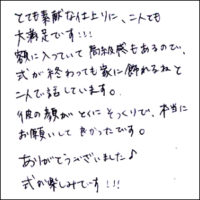 とても素敵な仕上りに、二人でも
大満足です!!!
額に入っていて高級感もあるので、
式が終わっても家に飾れるねと
二人で話しています。
彼の顔がとくにそっくりで、本当に
お願いして良かったです。
ありがとうございました♪
式が楽しみです!!!